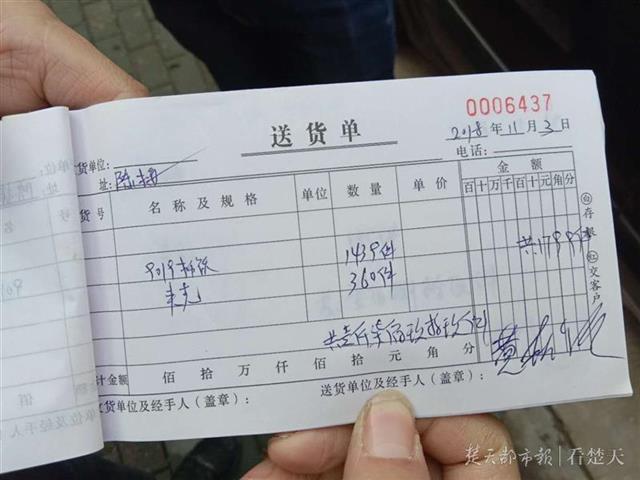 0006437
送货单
2018年11月3日
货单位:
电话:
址:
货号 名称及规格 单位 数量 单价 金额
百十万千百十元角分
9019 1439件 共1799件
360件
共壹仟柒佰玖拾玖件
计金额 佰拾万仟佰拾元角分
收货单位及经手人(盖章): 送货单位及经手人(盖章):
白存根
红交客户
楚天都市报 看楚天